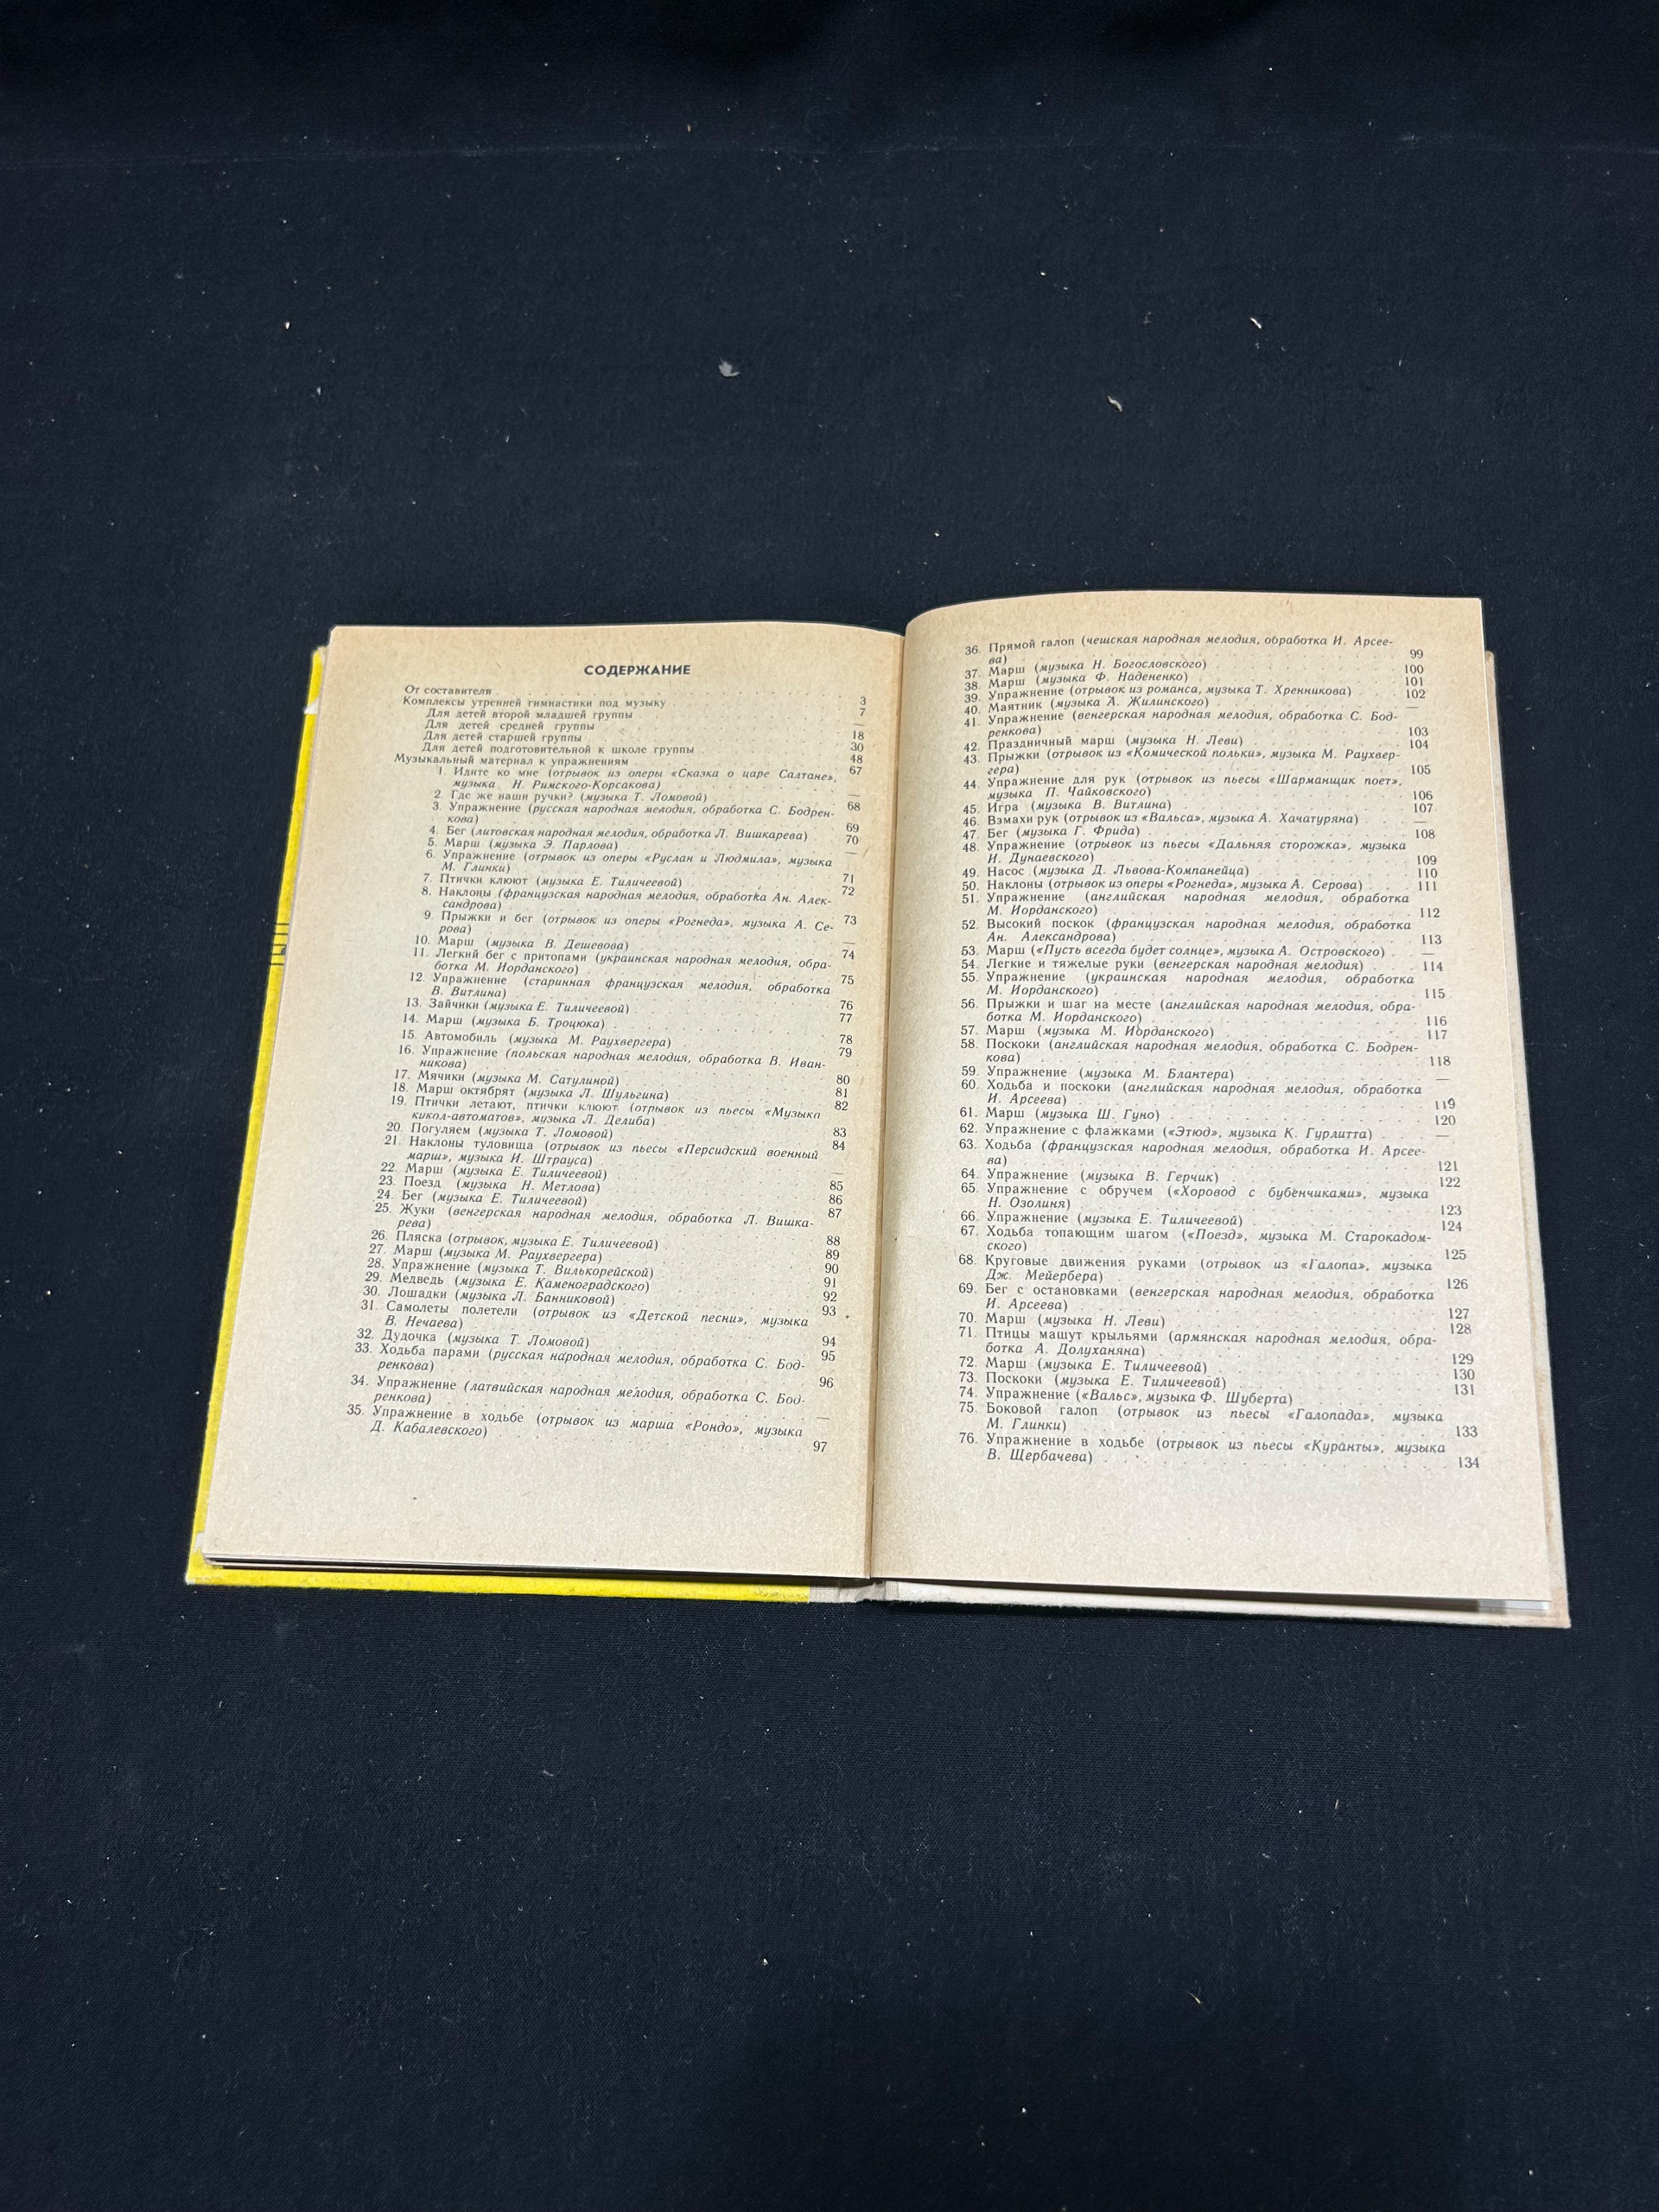 СОДЕРЖАНИЕ
От составителя 3
Комплексы утренней гимнастики под музыку 7
Для детей второй младшей группы —
Для детей средней группы 18
Для детей старшей группы 30
Для детей подготовительной к школе группы 48
Музыкальный материал к упражнениям 67
1. Идите ко мне (отрывок из оперы «Сказка о царе Салтане»,
музыка Н. Римского-Корсакова) —
2. Где же наши ручки? (музыка Т. Ломовой) 68
3. Упражнение (русская народная мелодия, обработка С. Бодрен-
кова) 69
4. Бег (литовская народная мелодия, обработка Л. Вишкарева) 70
5. Марш (музыка Э. Парлова) —
6. Упражнение (отрывок из оперы «Руслан и Людмила», музыка
М. Глинки) 71
7. Птички клюют (музыка Е. Тиличеевой) 72
8. Наклоны (французская народная мелодия, обработка Ан. Алек-
сандрова) 73
9. Прыжки и бег (отрывок из оперы «Рогнеда», музыка А. Се-
рова) —
10. Марш (музыка В. Дешевова) 74
11. Легкий бег с притопами (украинская народная мелодия, обра-
ботка М. Иорданского) 75
12. Упражнение (старинная французская мелодия, обработка
В. Витлина) 76
13. Зайчики (музыка Е. Тиличеевой) 77
14. Марш (музыка Б. Троцюка) 78
15. Автомобиль (музыка М. Раухвергера) 79
16. Упражнение (польская народная мелодия, обработка В. Иван-
никова) 80
17. Мячики (музыка М. Сатулиной) 81
18. Марш октябрят (музыка Л. Шульгина) 82
19. Птички летают, птички клюют (отрывок из пьесы «Музыка
кукол-автоматов», музыка Л. Делиба) 83
20. Погуляем (музыка Т. Ломовой) 84
21. Наклоны туловища (отрывок из пьесы «Персидский военный
марш», музыка И. Штрауса) —
22. Марш (музыка Е. Тиличеевой) 85
23. Поезд (музыка Н. Метлова) 86
24. Бег (музыка Е. Тиличеевой) 87
25. Жуки (венгерская народная мелодия, обработка Л. Вишка-
рева) 88
26. Пляска (отрывок, музыка Е. Тиличеевой) 89
27. Марш (музыка М. Раухвергера) 90
28. Упражнение (музыка Т. Вилькорейской) 91
29. Медведь (музыка Е. Каменоградского) 92
30. Лошадки (музыка Л. Банниковой) 93
31. Самолеты полетели (отрывок из «Детской песни», музыка
В. Нечаева) 94
32. Дудочка (музыка Т. Ломовой) 95
33. Ходьба парами (русская народная мелодия, обработка С. Бод-
ренкова) 96
34. Упражнение (латвийская народная мелодия, обработка С. Бод-
ренкова) —
35. Упражнение в ходьбе (отрывок из марша «Рондо», музыка
Д. Кабалевского) 97
36. Прямой галоп (чешская народная мелодия, обработка И. Арсее-
ва) 99
37. Марш (музыка Н. Богословского) 100
38. Марш (музыка Ф. Надененко) 101
39. Упражнение (отрывок из романса, музыка Т. Хренникова) 102
40. Маятник (музыка А. Жилинского) —
41. Упражнение (венгерская народная мелодия, обработка С. Бод-
ренкова) 103
42. Праздничный марш (музыка Н. Леви) 104
43. Прыжки (отрывок из «Комической польки», музыка М. Раухвер-
гера) 105
44. Упражнение для рук (отрывок из пьесы «Шарманщик поет»,
музыка П. Чайковского) 106
45. Игра (музыка В. Витлина) 107
46. Взмахи рук (отрывок из «Вальса», музыка А. Хачатуряна) —
47. Бег (музыка Г. Фрида) 108
48. Упражнение (отрывок из пьесы «Дальняя сторожка», музыка
И. Дунаевского) 109
49. Насос (музыка Д. Львова-Компанейца) 110
50. Наклоны (отрывок из оперы «Рогнеда», музыка А. Серова) 111
51. Упражнение (английская народная мелодия, обработка
М. Иорданского) 112
52. Высокий поскок (французская народная мелодия, обработка
Ан. Александрова) 113
53. Марш («Пусть всегда будет солнце», музыка А. Островского) —
54. Легкие и тяжелые руки (венгерская народная мелодия) 114
55. Упражнение (украинская народная мелодия, обработка
М. Иорданского) 115
56. Прыжки и шаг на месте (английская народная мелодия, обра-
ботка М. Иорданского) 116
57. Марш (музыка М. Иорданского) 117
58. Поскоки (английская народная мелодия, обработка С. Бодрен-
кова) 118
59. Упражнение (музыка М. Блантера) —
60. Ходьба и поскоки (английская народная мелодия, обработка
И. Арсеева) 119
61. Марш (музыка Ш. Гуно) 120
62. Упражнение с флажками («Этюд», музыка К. Гурлитта) —
63. Ходьба (французская народная мелодия, обработка И. Арсее-
ва) 121
64. Упражнение (музыка В. Герчик) 122
65. Упражнение с обручем («Хоровод с бубенчиками», музыка
Н. Озолиня) 123
66. Упражнение (музыка Е. Тиличеевой) 124
67. Ходьба топающим шагом («Поезд», музыка М. Старокадом-
ского) 125
68. Круговые движения руками (отрывок из «Галопа», музыка
Дж. Мейербера) 126
69. Бег с остановками (венгерская народная мелодия, обработка
И. Арсеева) 127
70. Марш (музыка Н. Леви) 128
71. Птицы машут крыльями (армянская народная мелодия, обра-
ботка А. Долуханяна) 129
72. Марш (музыка Е. Тиличеевой) 130
73. Поскоки (музыка Е. Тиличеевой) 131
74. Упражнение («Вальс», музыка Ф. Шуберта)
75. Боковой галоп (отрывок из пьесы «Галопада», музыка
М. Глинки) 133
76. Упражнение в ходьбе (отрывок из пьесы «Куранты», музыка
В. Щербачева) 134